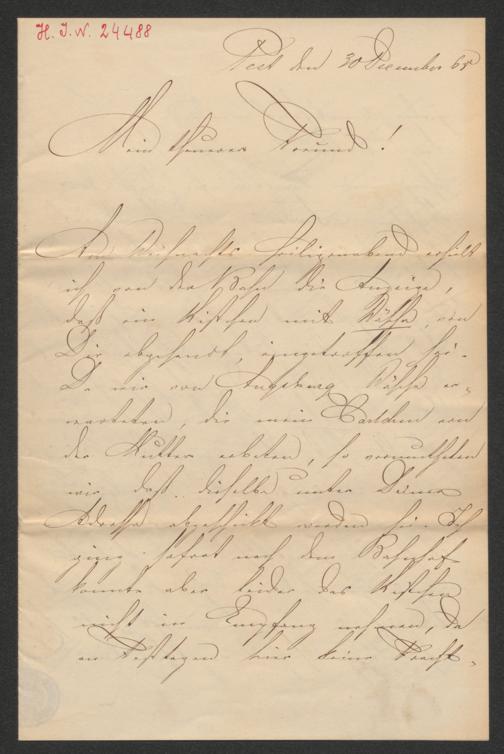 H. I. N. 24488
Pest den 30 December 65
Mein theurer Freund!
Am Weihnachts Heiligenabend erhielt
ich von der Bahn die Anzeige,
daß ein Kistchen mit Wäsche, von
Dir abgesendet, eingetroffen sei.
Da wir von Augsburg Wäsche er-
warteten, die mein Carlchen von
der Mutter erbeten, so vermutheten
wir daß dieselbe unter Deiner
Adresse abgeschickt worden sei. Ich
ging sofort nach dem Bahnhof
konnte aber leider das Kistchen
nicht in Empfang nehmen, da
an Festtagen hier keine Fracht-